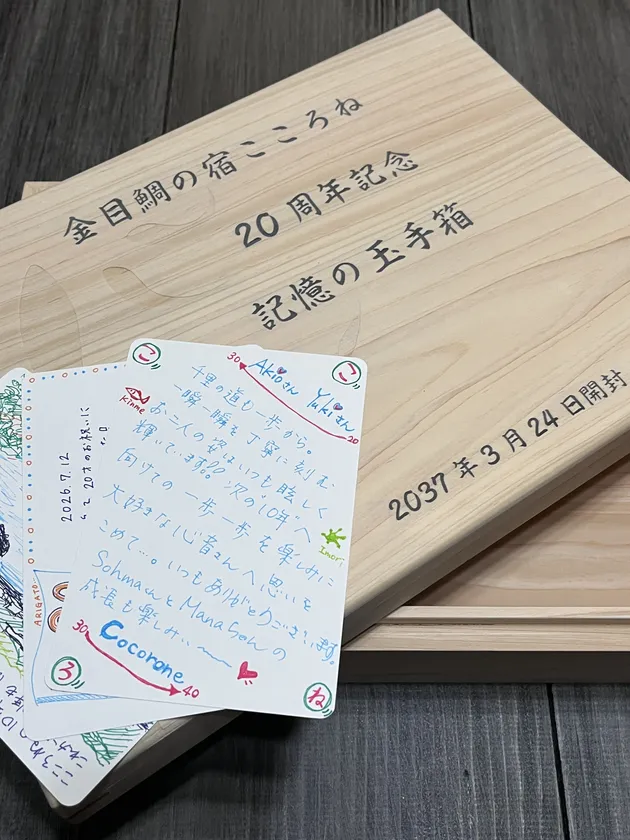 金目鯛の宿こころね
20周年記念
記憶の玉手箱
2037年3月24日開封
こ
こ
ろ
ね
30
Akioさん
Yukiさん
20
Kinme
千里の道も一歩から。
一瞬一瞬を丁寧に刻む
お二人の姿はいつも眩しく
輝いています!! 次の"10年"へ
向けての一歩一歩を楽しみに
大好きな心音さんへ思いを
こめて…。いつもありがとうございます。
SohmaくんとManaちゃんの
成長も楽しみ…
Imori
30
Cocorone
40
2026.7.12
20才のお祝いに
ARIGATO